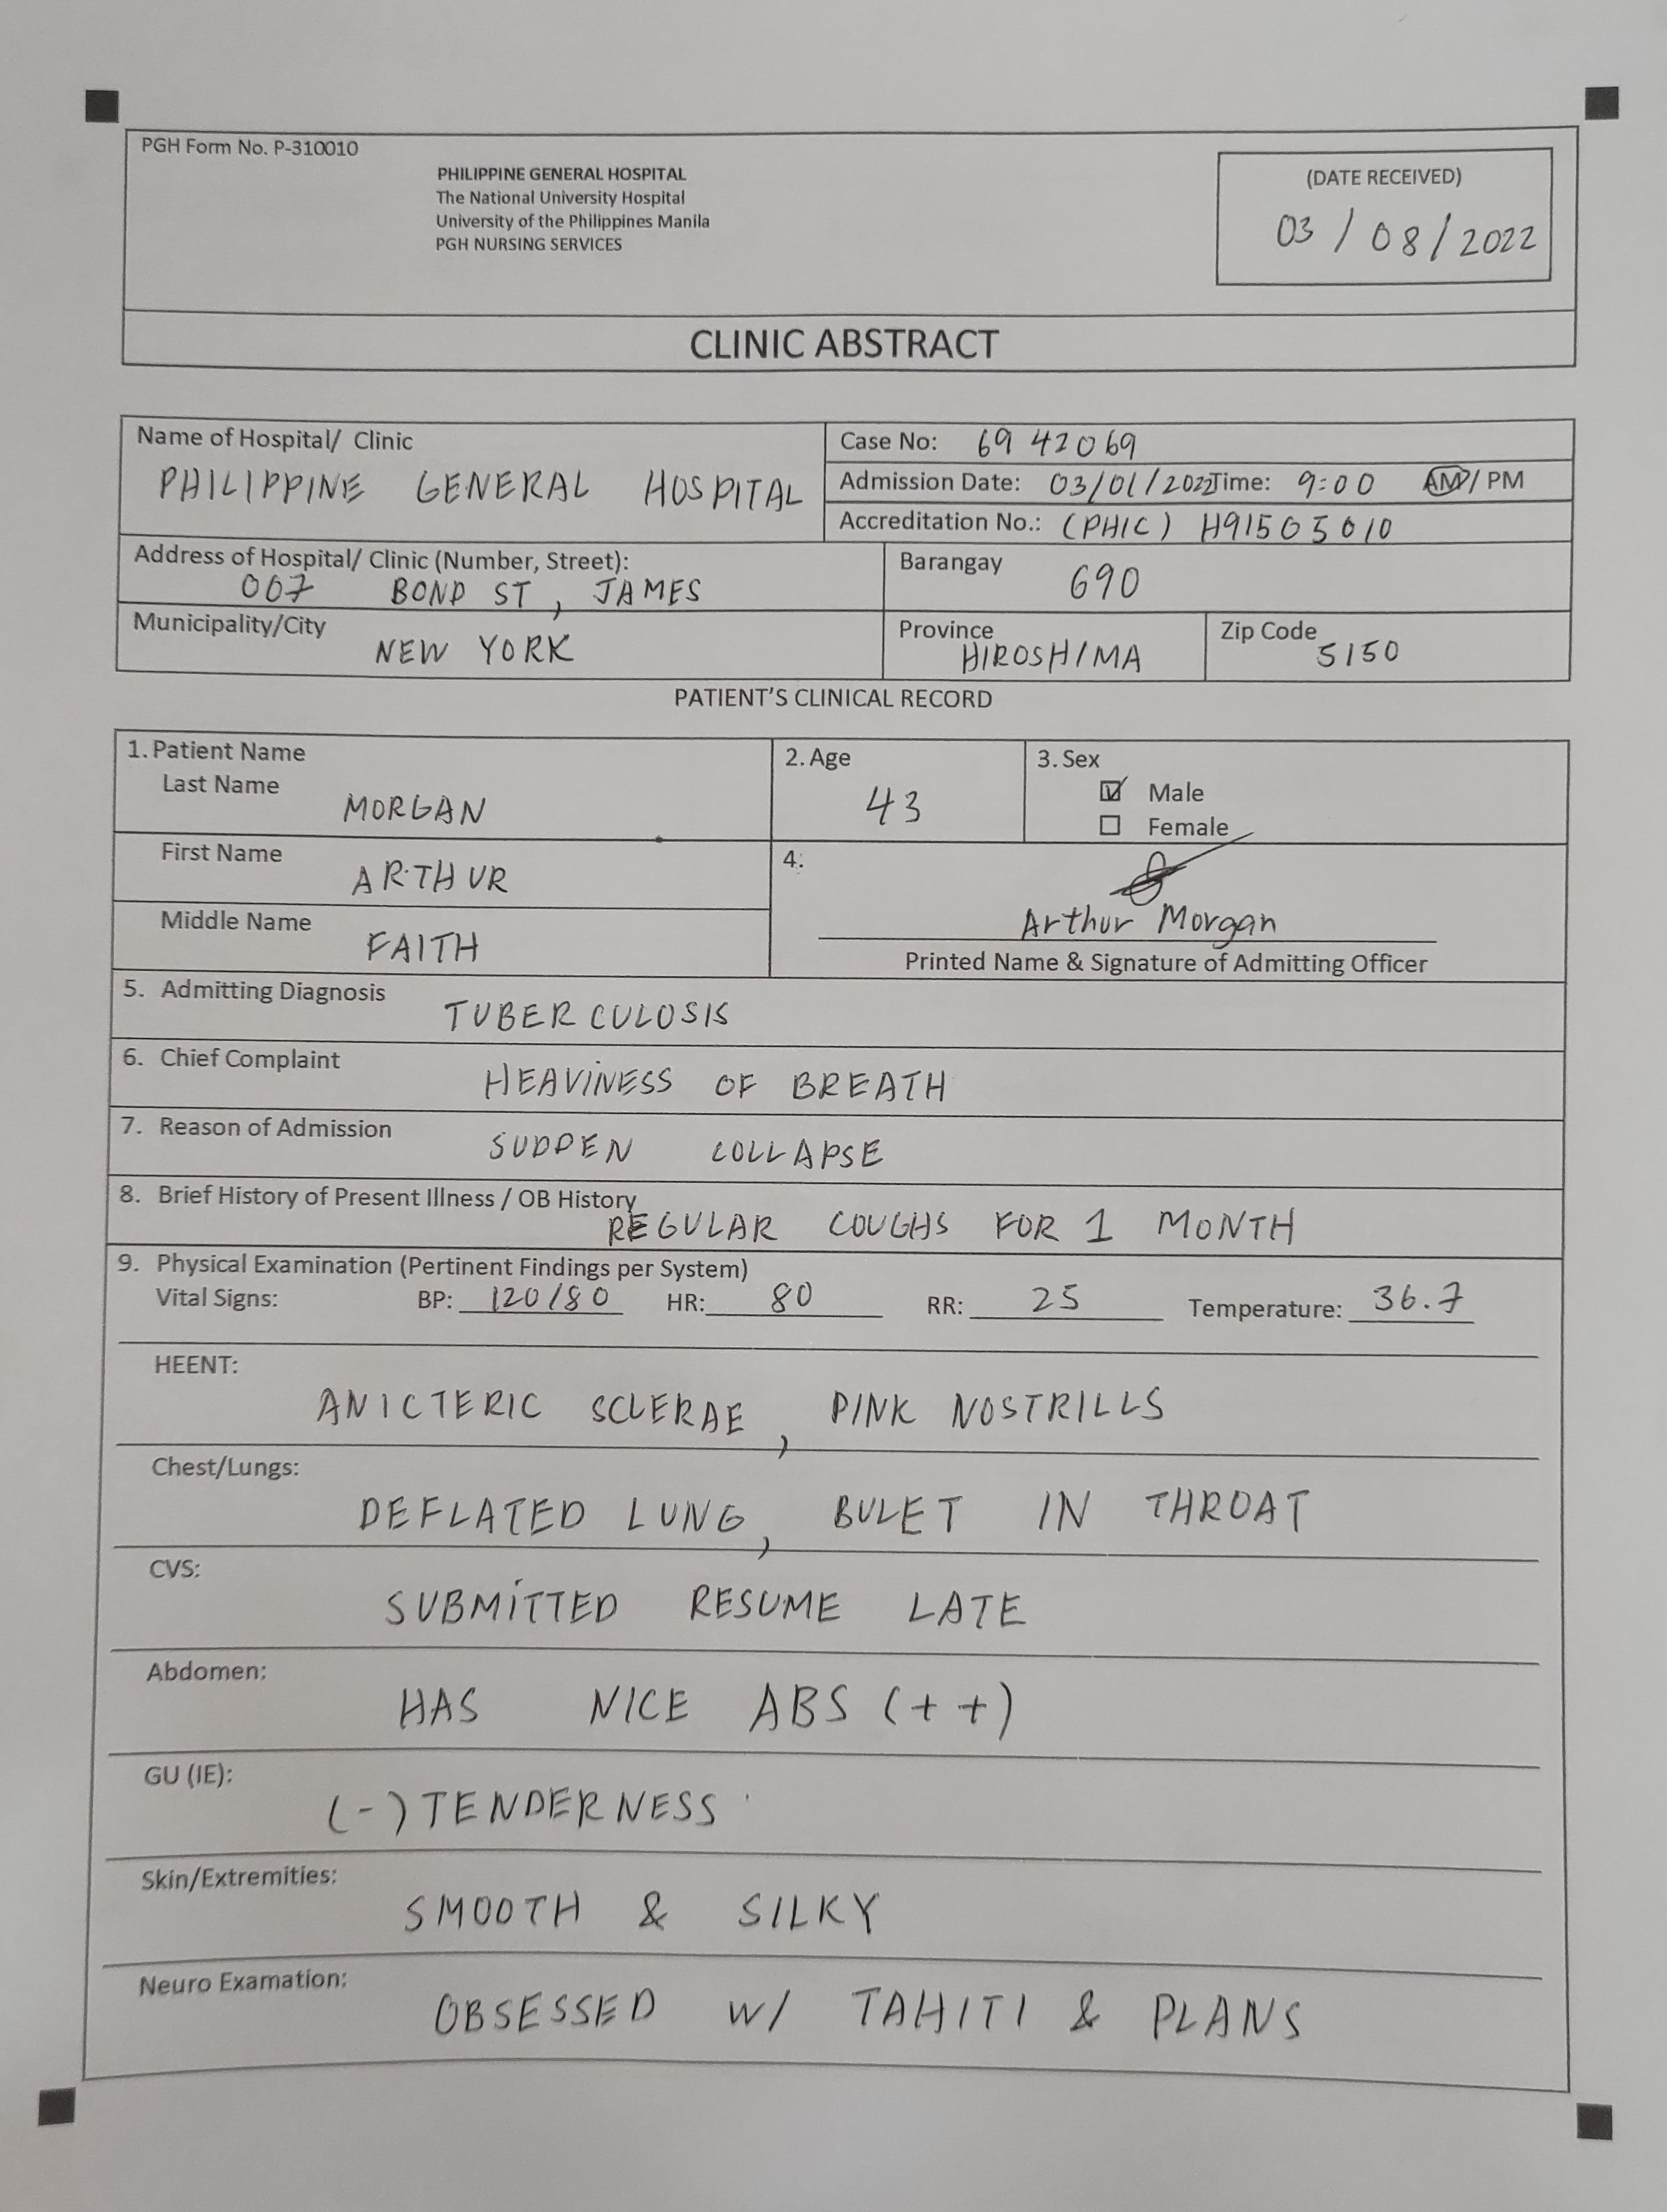 PGH Form No. P-310010
PHILIPPINE GENERAL HOSPITAL
The National University Hospital
University of the Philippines Manila
PGH NURSING SERVICES
(DATE RECEIVED)
03/08/2022
CLINIC ABSTRACT
Name of Hospital/ Clinic
PHILIPPINE GENERAL HOSPITAL
Case No: 69 42069
Admission Date: 03/01/2022 Time: 9:00 AM/ PM
Accreditation No.: (PHIC) H91505010
Address of Hospital/ Clinic (Number, Street):
007 BOND ST, JAMES
Barangay
690
Municipality/City
NEW YORK
Province
HIROSHIMA
Zip Code
5150
PATIENT'S CLINICAL RECORD
1. Patient Name
Last Name
MORGAN
2. Age
43
3. Sex
Male
Female
First Name
ARTHUR
4.
Arthur Morgan
Printed Name & Signature of Admitting Officer
Middle Name
FAITH
5. Admitting Diagnosis
TUBERCULOSIS
6. Chief Complaint
HEAVINESS OF BREATH
7. Reason of Admission
SUDDEN COLLAPSE
8. Brief History of Present Illness / OB History
REGULAR COUGHS FOR 1 MONTH
9. Physical Examination (Pertinent Findings per System)
Vital Signs: BP: 120/80 HR: 80 RR: 25 Temperature: 36.7
HEENT:
ANICTERIC SCLERAE, PINK NOSTRILLS
Chest/Lungs:
DEFLATED LUNG, BULET IN THROAT
CVS:
SUBMITTED RESUME LATE
Abdomen:
HAS NICE ABS (++)
GU (IE):
(-) TENDERNESS
Skin/Extremities:
SMOOTH & SILKY
Neuro Examation:
OBSESSED W/ TAHITI & PLANS